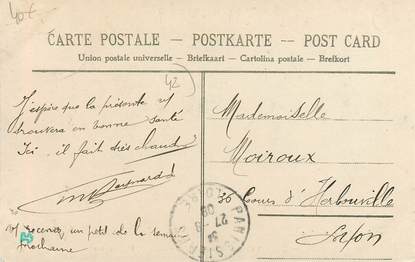 40x
CARTE POSTALE – POSTKARTE -- POST CARD
Union postale universelle – Briefkaart – Cartolina postale – Brefkort
42
J'espère que la présente v/
trouvera en bonne santé
Ici il fait très chaud
v/ recevrez un petit de la semaine
prochaine
Mademoiselle
Moiroux
36 Cours d'Herbouville
Lyon